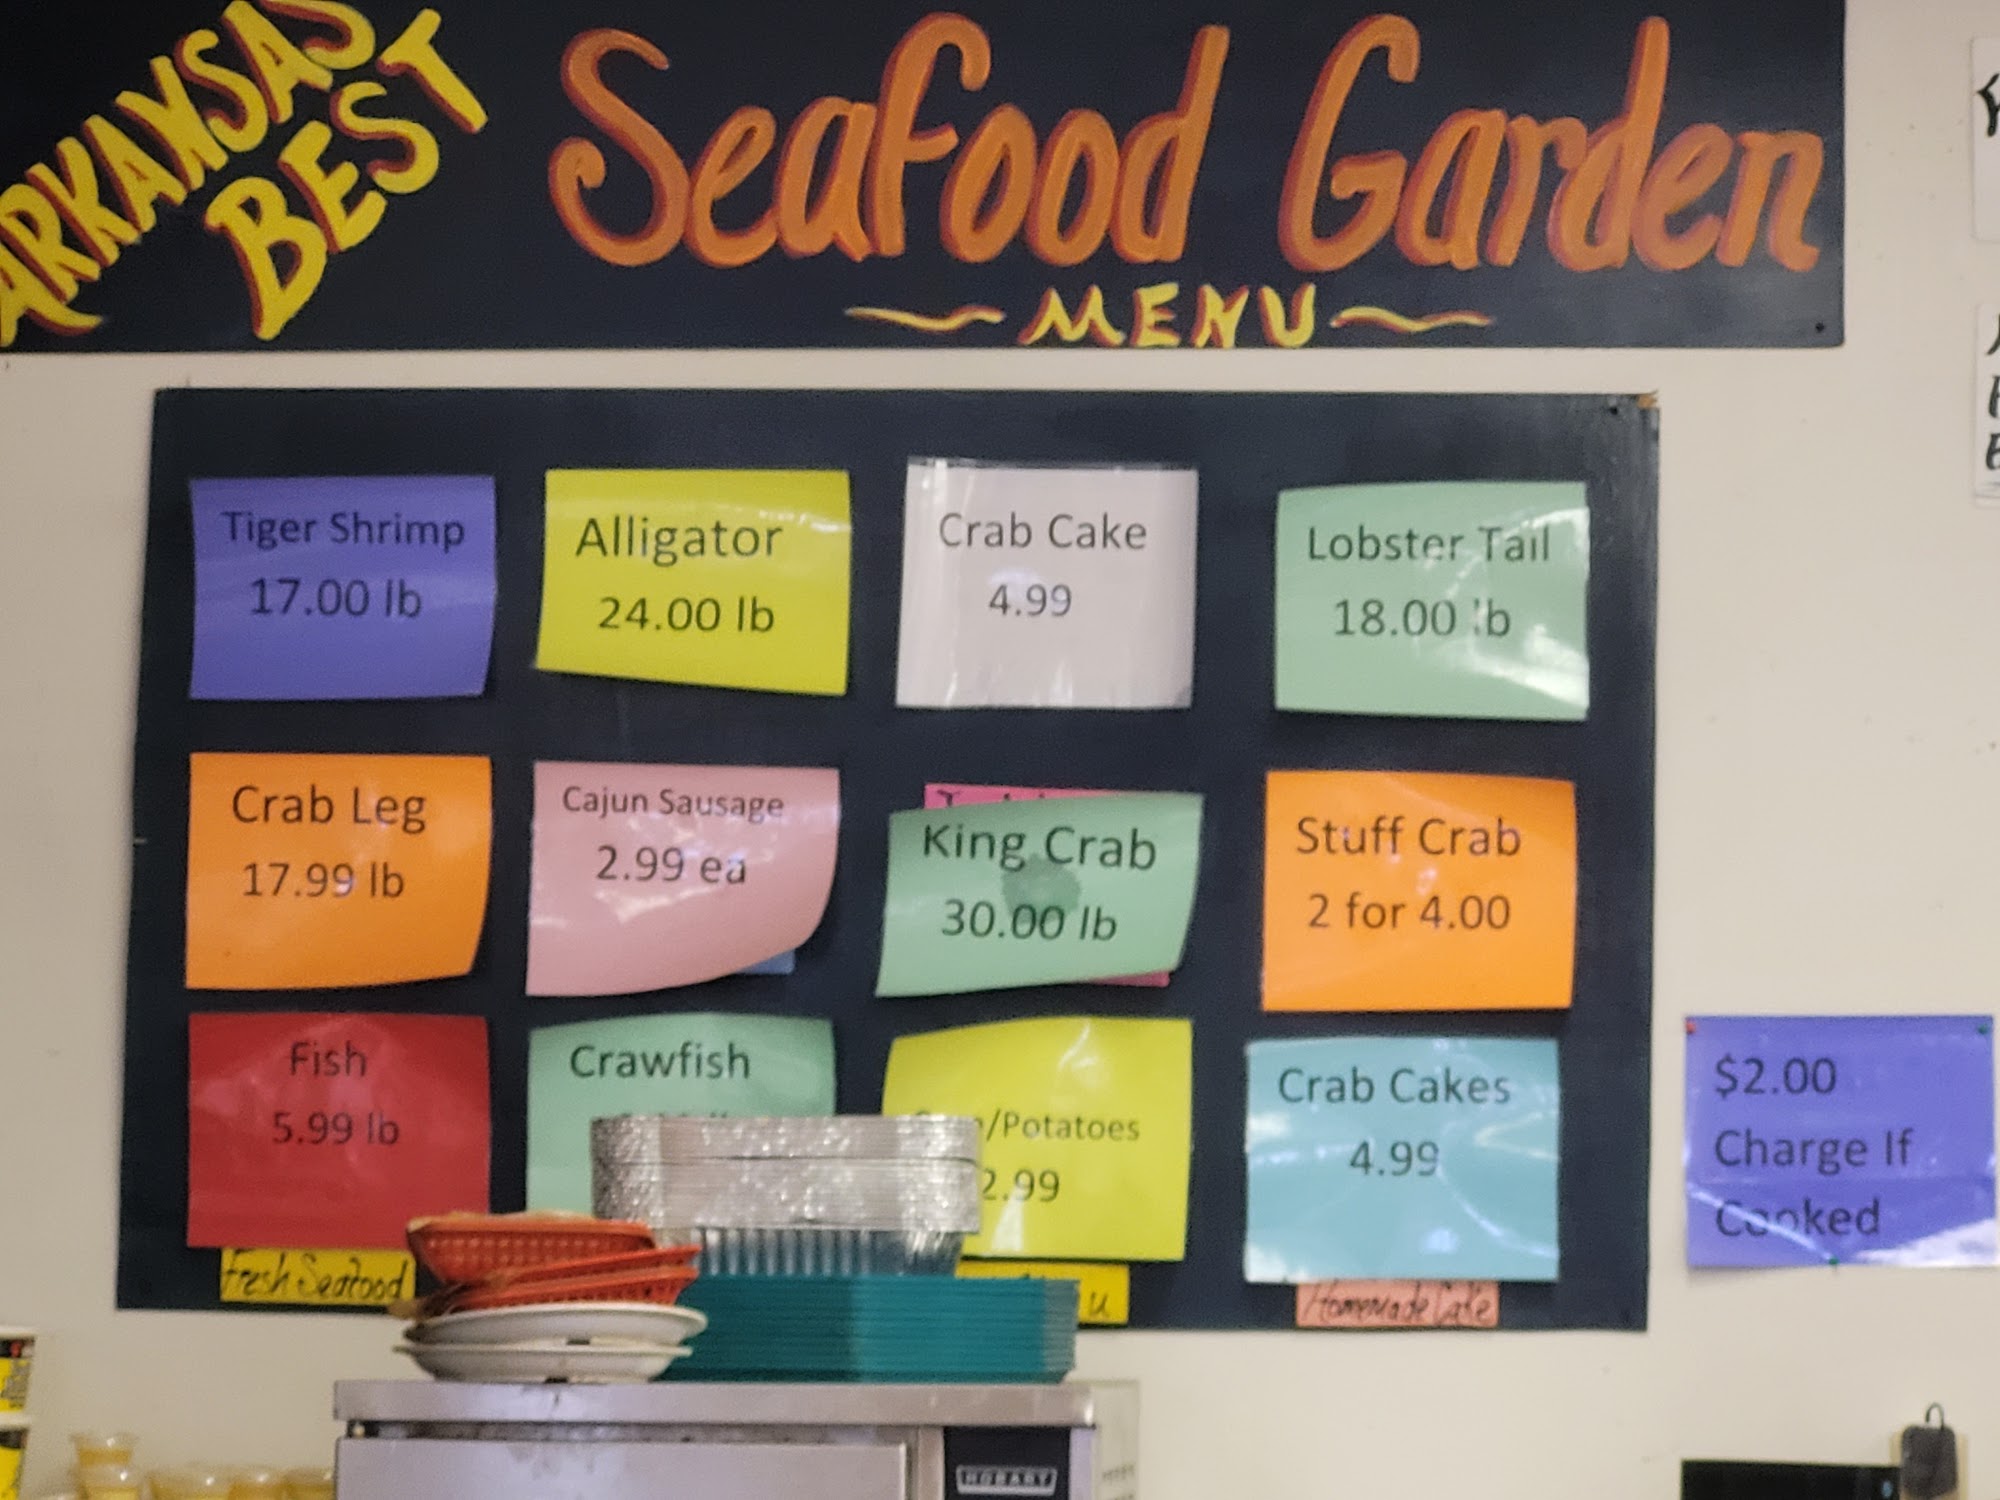 ARKANSAS
BEST
Seafood Garden
MENU
Tiger Shrimp
17.00 lb
Alligator
24.00 lb
Crab Cake
4.99
Lobster Tail
18.00 lb
Crab Leg
17.99 lb
Cajun Sausage
2.99 ea
King Crab
30.00 lb
Stuff Crab
2 for 4.00
Fish
5.99 lb
Crawfish
/Potatoes
2.99
Crab Cakes
4.99
$2.00
Charge If
Cooked
Fresh Seafood
Homemade Cake
HOBART